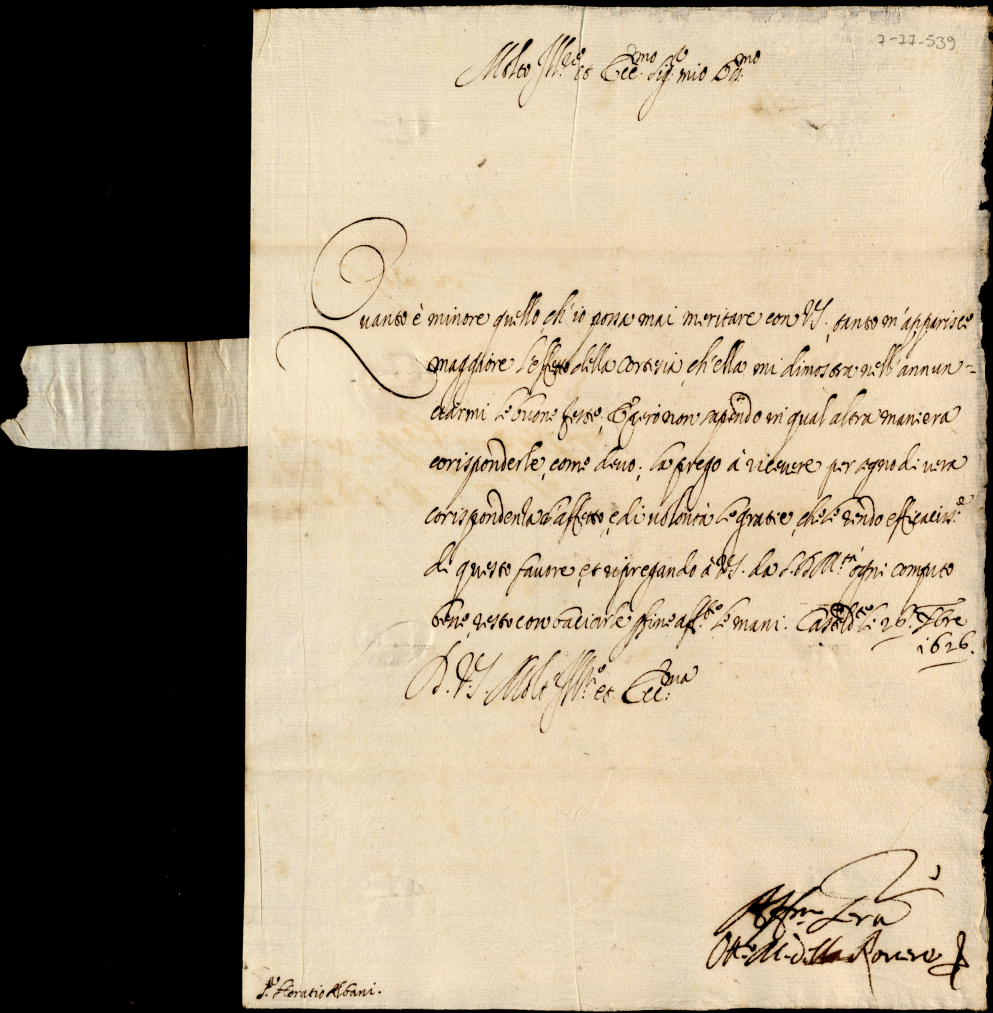 7-77-539
Molto Ill.re et Ecc.mo Sig.re mio Oss.mo
Quanto è minore quello ch'io possa mai meritare con V.S. tanto m'apparisce
maggiore l'effetto della cortesia, ch'ella mi dimostra nell'annun-
ciarmi le buone feste, Et però non sapendo in qual altra maniera
corisponderle, come devo, la prego à ricevere per segno di vera
corispondenza d'affetto, e di volontà le gratie, che le rendo efficaciss.e
di questo favore, et ripregando à V.S. da S.D.M.tà ogni compito
bene, resto con baciarle aff.te le mani. Casteld.te li 26. Xbre
1626.
D. V.S. Molt'Ill.re et Ecc.ma
Aff.mo
della Rovere
S.r Horatio Albani.